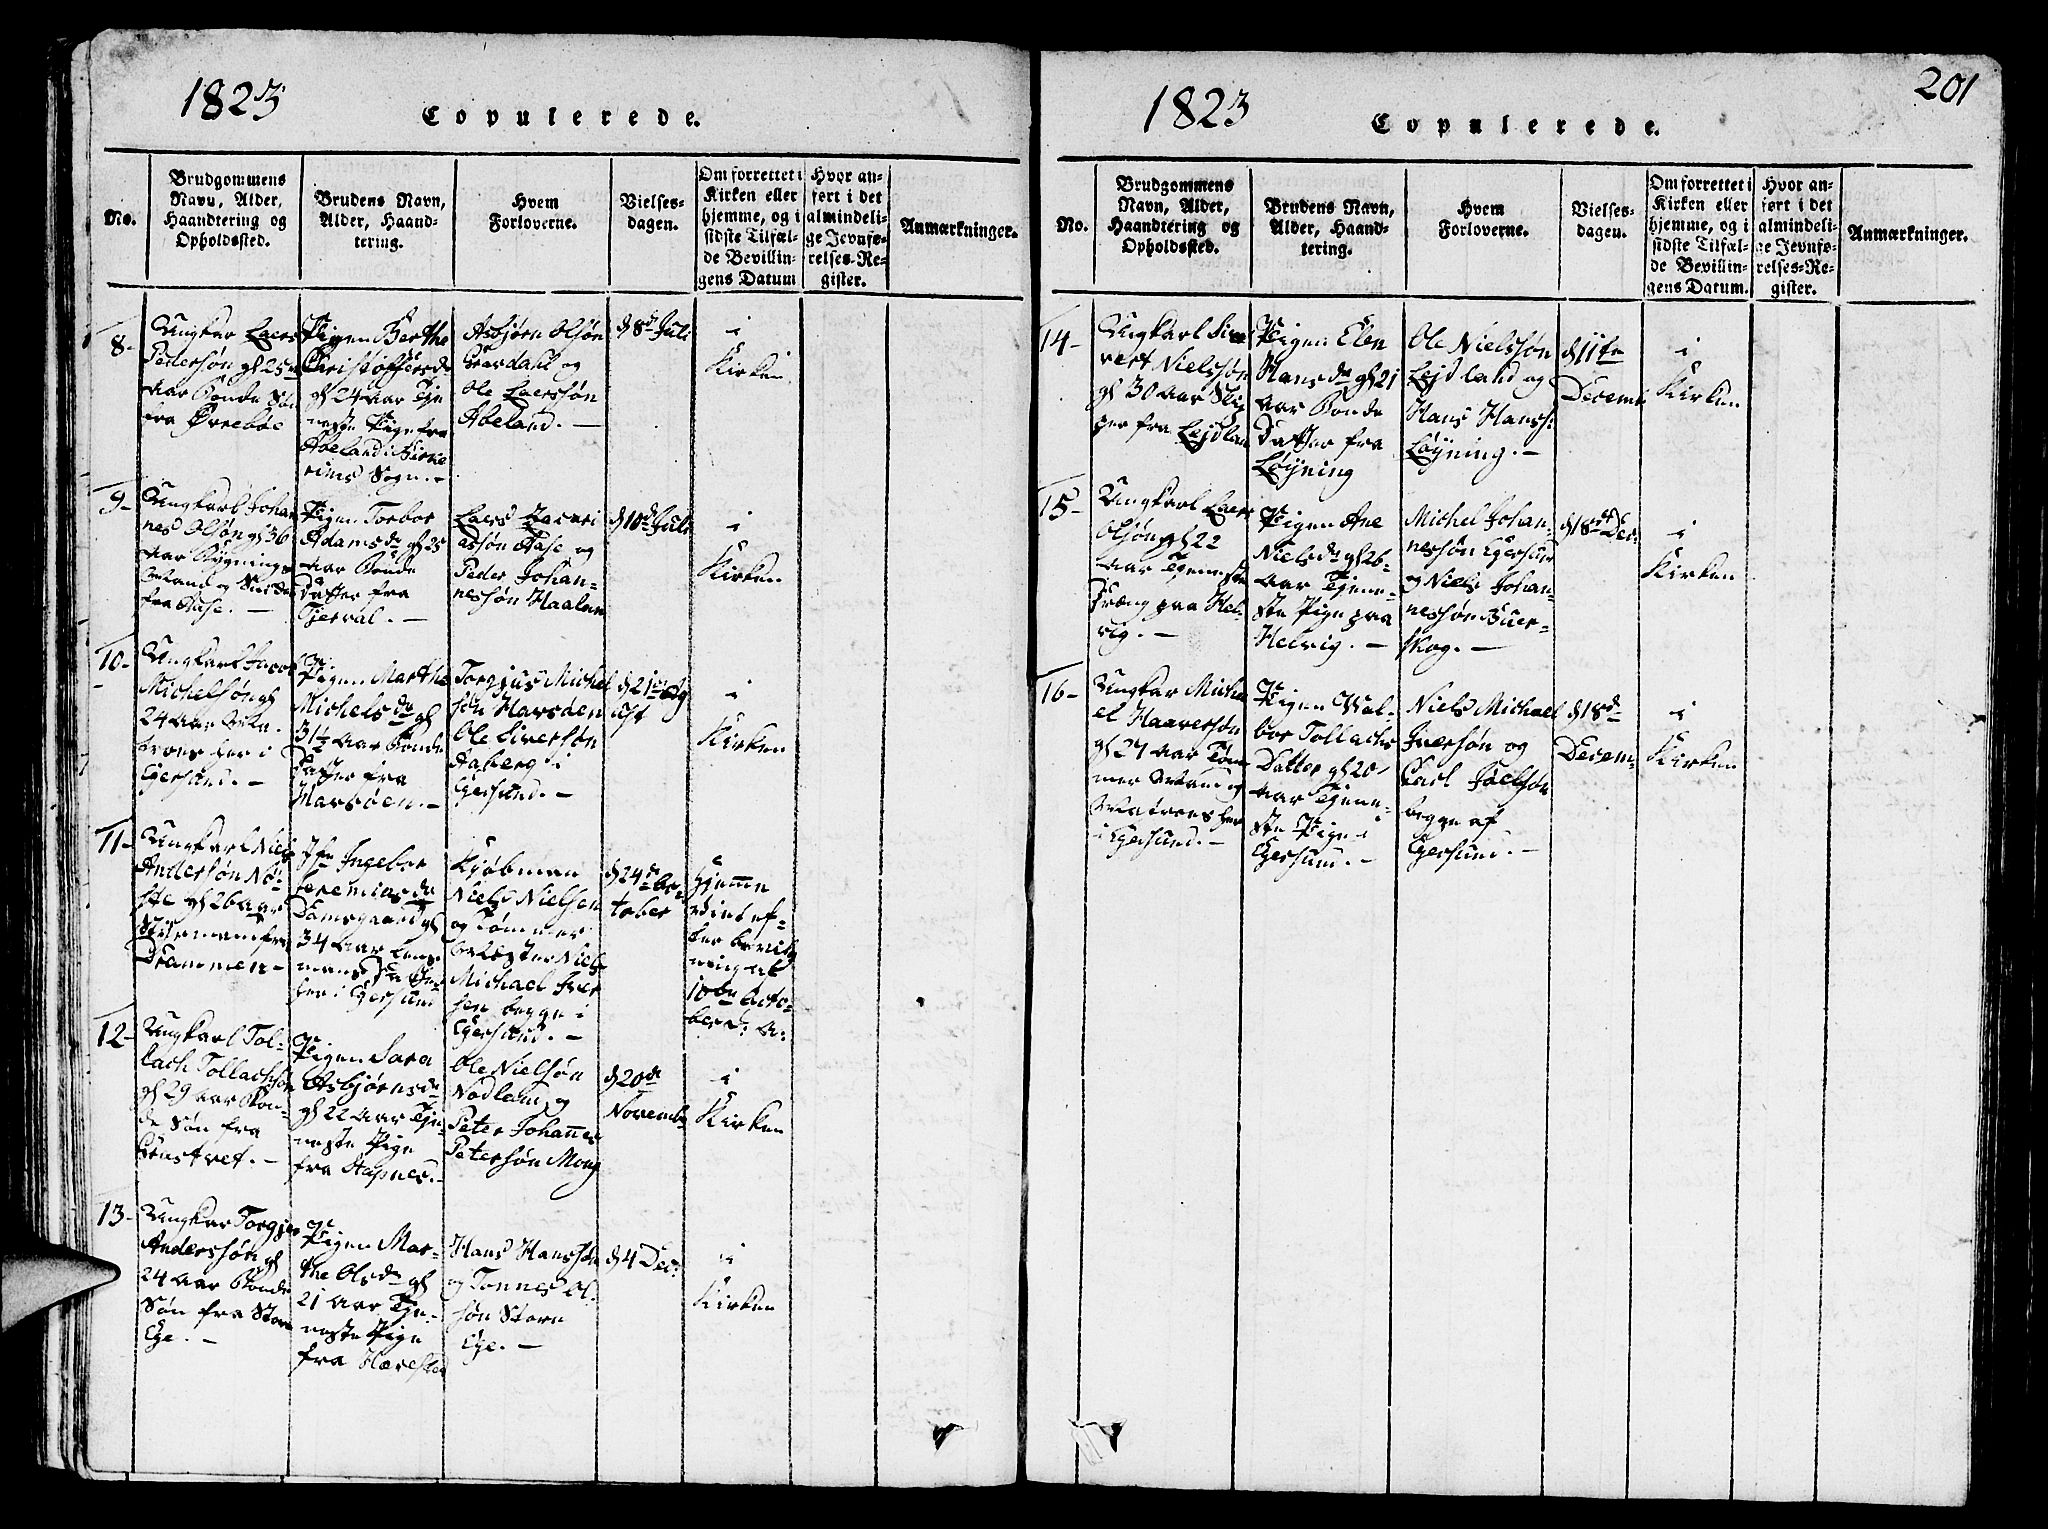 1823
Copulerede.
No.
Brudgommens
Navn, Alder,
Haandtering og
Opholdssted.
Brudens Navn,
Alder, Haand-
tering.
Hvem
Forloverne.
Vielses-
dagen.
Om forrettet i
Kirken eller
hjemme, og i
sidste Tilfæl-
de Bevillin-
gens Datum
Hvor an-
ført i det
almindeli-
ge Jevnfø-
relses-Re-
gister.
Anmærkninger.
8-
Ungkar Laers
Pedersøn gl 25
aar Bonde Søn
fra Ørrebøe
Pigen Berthe
Christoffersd
gl 24 aar Tje
neste Pige fra
Abeland i
Sogn.-
Asbjørn Olsøn
Gravdahl og
Ole Laerssøn
Abeland.-
d 8de Juli
i
Kirken
9-
Ungkarl Johan
nes Olsøn gl 36
aar Bygnings
Mand og
fra Aase.-
Pigen Torbor
Adamsd gl 25
aar Bonde
Datter fra
Tjerval.-
Laers Zacari
assøn Aase og
Peder Johan-
nessøn Haaland
d 10de Juli
i
Kirken
10-
Ungkarl Jacob
Michelsøn gl
24 aar Ma
trons her i
Egersund.-
Pigen Marthe
Michelsdr gl
31½ aar Bonde
Datter fra
Marsøen.-
Torgjus Michel
søn Havsøen
Ole Siversøn
Aaberg i
Egersund.-
d 21de Ag
ust
i
Kirken
11-
Ungkarl Niels
Andersøn Nø
ste gl 26 aar
Styrmann fra
Drammen-
Jfr Ingebor
Jeremiasdr
Damsgaard gl
34 aar Lens
mans Datter
her i Egersund
Kjøbman
Niels Nielsen
og Tømmer
Niels
Michael Iver
sen begge i
Egersund.-
d 24de Oc
tober
Hjemme
viet ef-
ter bevilg
ning af
10de Octo-
ber d: A:
12-
Ungkarl Tol-
lach Tollachsøn
gl 29 aar Bon-
de Søn fra
Pigen Sara
Asbjørnsdr
gl 22 aar Tje-
neste Pige
fra Stapnes.-
Ole Nielsøn
Nodland og
Peter Johannes
Petersøn Mong
d 20de
Novemb
i
Kirken
13-
Ungkar Torgjer
Anderssøn gl
24 aar Bonde
Søn fra Store
Ege.-
Pigen Mar-
the Olsdr gl
21 aar Tje-
neste Pige
fra Hæresta
Hans Hanssøn
og Tonnes Ol
søn Store
Ege.-
d 4 Dec:
i
Kirken
201
1823
Copulerede.
No.
Brudgommens
Navn, Alder,
Haandtering og
Opholdssted.
Brudens Navn,
Alder, Haand-
tering.
Hvem
Forloverne.
Vielses-
dagen.
Om forrettet i
Kirken eller
hjemme, og i
sidste Tilfæl-
de Bevillin-
gens Datum.
Hvor an-
ført i det
almindeli-
ge Jevnfø-
relses-Re-
gister.
Anmærkninger.
14-
Ungkarl Sie
vert Nielssøn
gl 30 aar Skip
per fra Lejdlan
Pigen Elen
Hansdr gl 21
aar Bonde
Datter fra
Løyning
Ole Nielssøn
Lejdland og
Hans Hanss:
Løyning.-
d 11te
Decemb
i
Kirken
15-
Ungkarl Laers
Olsøn gl 22
aar Tjeneste
Dræng paa Hel-
vig.-
Pigen Ane
Nielsdr gl 26-
aar Tjene-
ste Pige paa
Helvig.-
Michel Johan-
nessøn Egersund
og Niels Johan-
nessøn Buer-
skog.-
d 18de Dec:
i
Kirken
16-
Ungkar Micha
el Haaversøn
gl 27 aar Tøm
mer Mand og
Matrons her
i Egersund.-
Pigen Wal-
bor Tollachs
Datter gl 20-
aar Tjene-
ste Pige i
Egersund.-
Niels Michael
Iversøn og
Carl Joelsøn
begge af
Egersund.-
d 18de
Decem-
i
Kirken